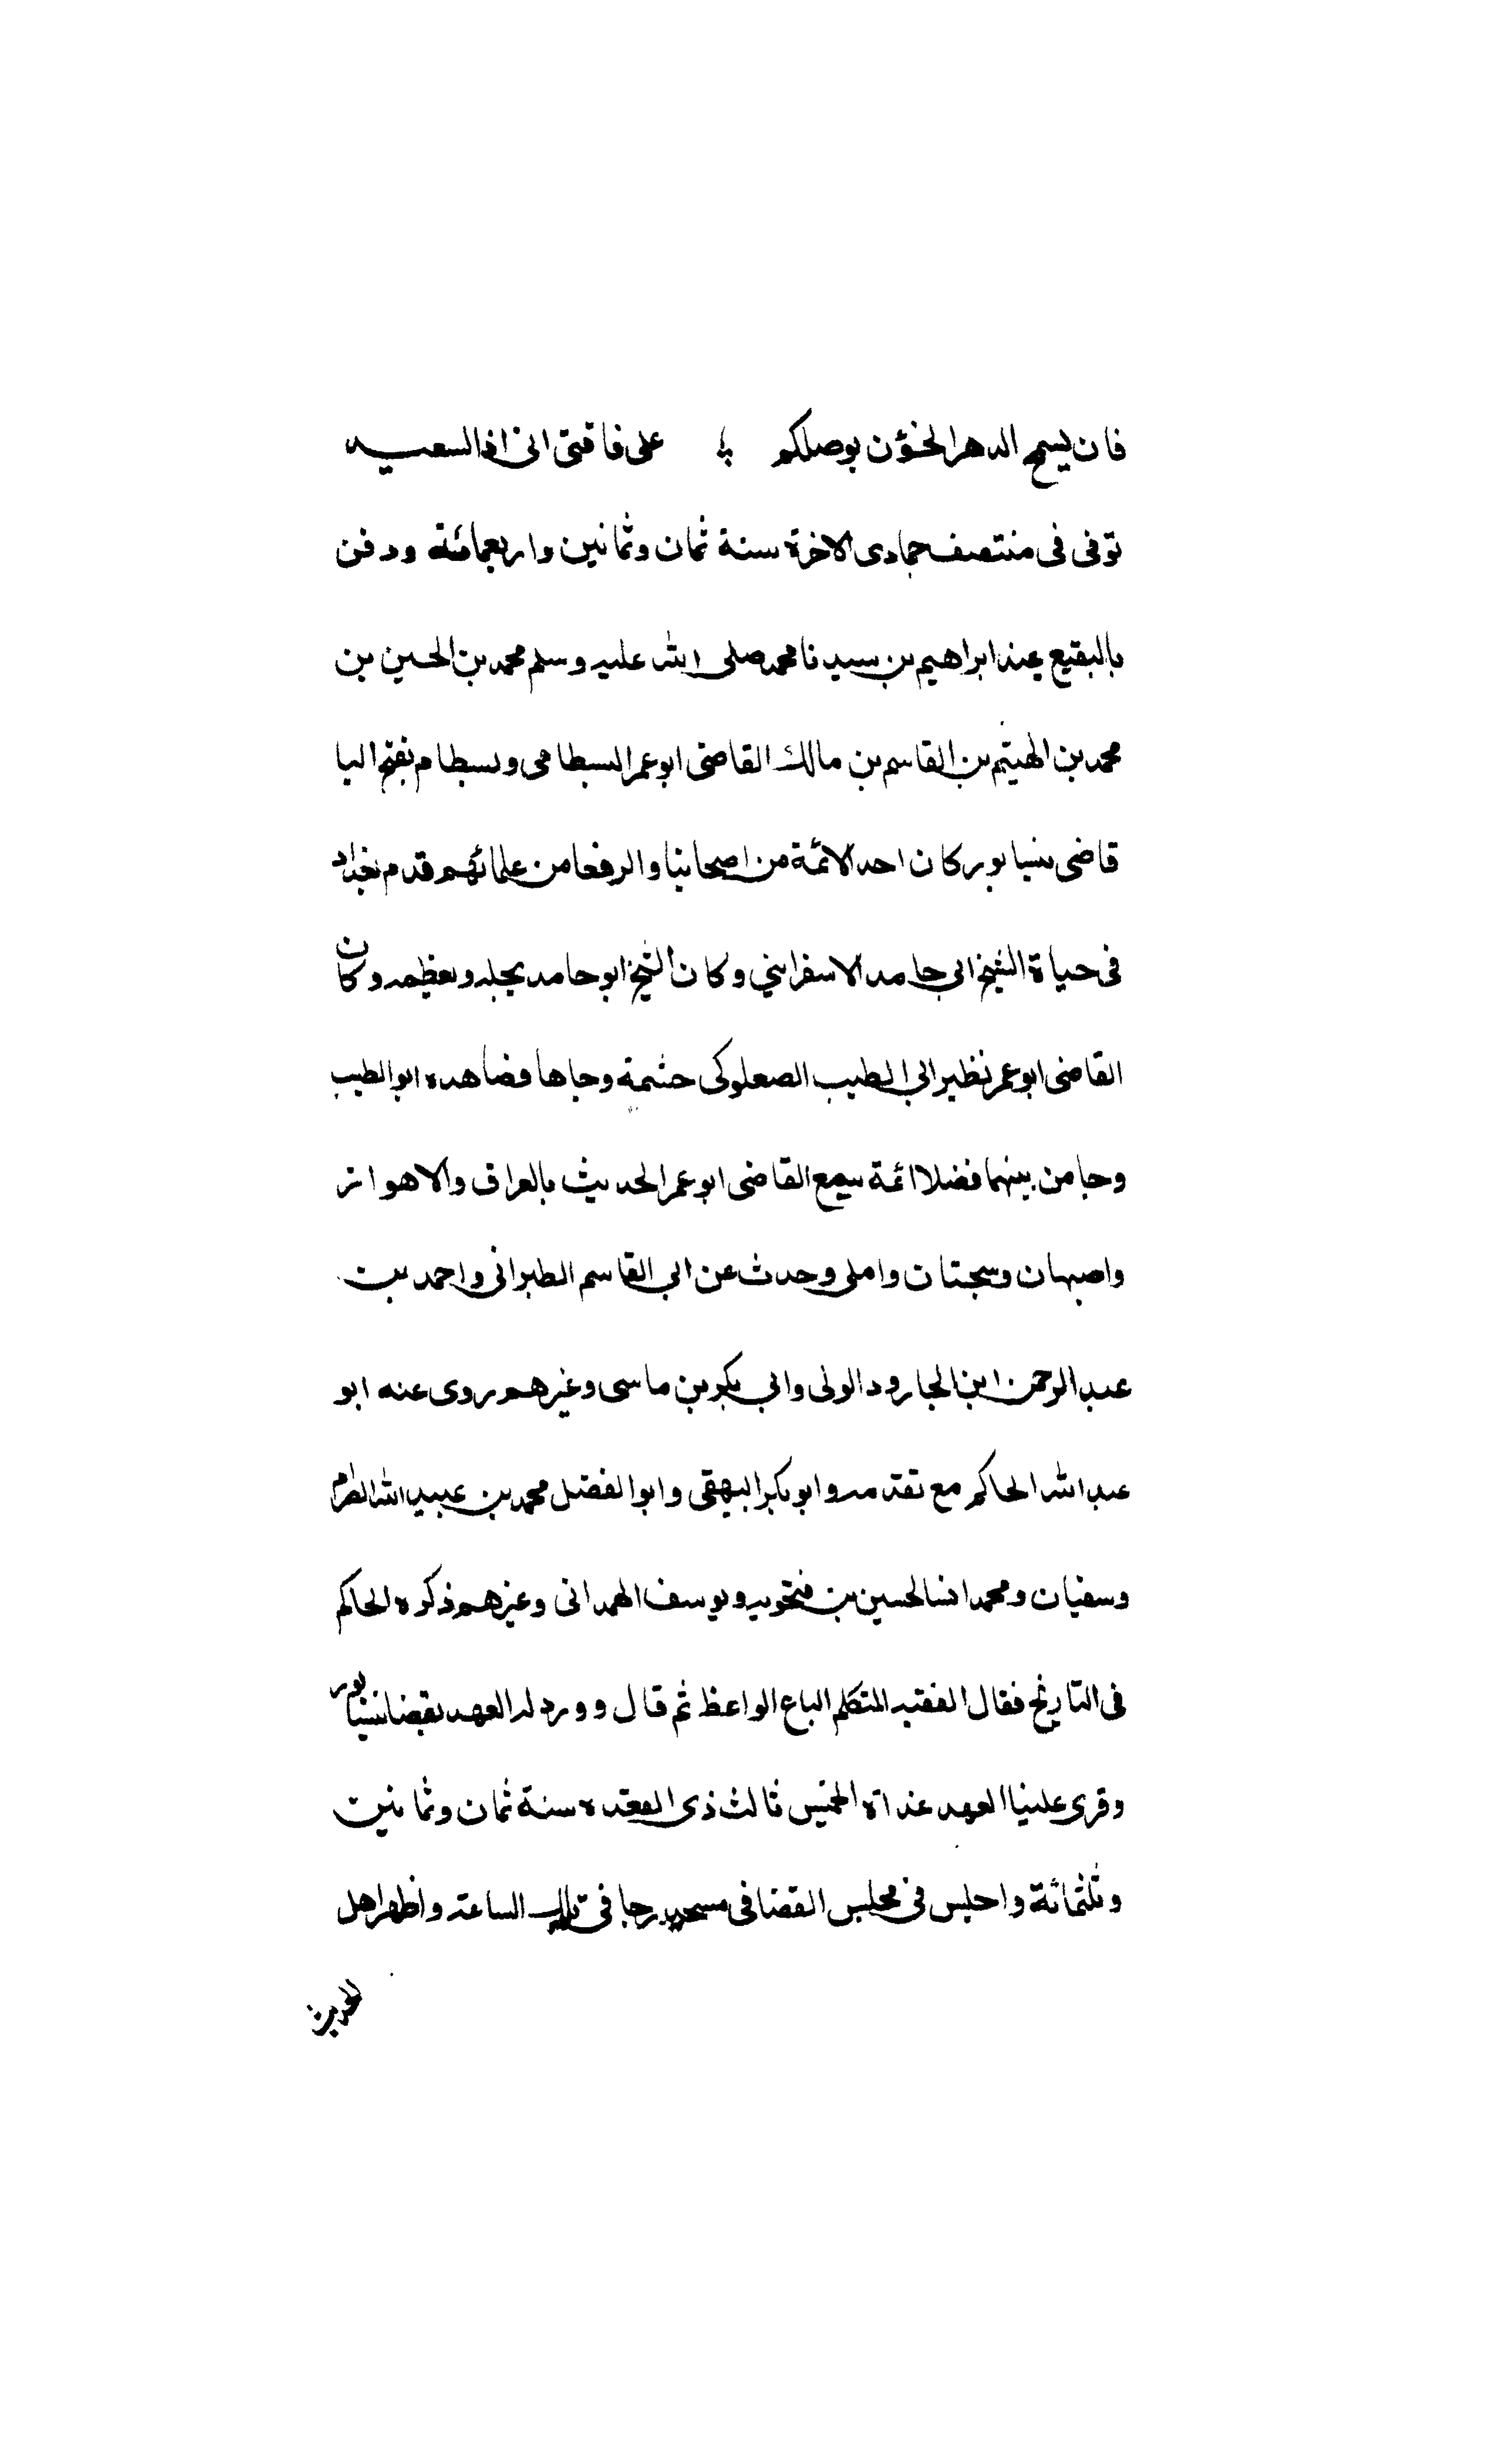 فان يسمح الدهر الخؤن بوصلكم على فاقتى انى اذا لسعيد
توفى فى منتصف جمادى الاخرة سنة ثمان وثمانين واربعمائة ودفن
بالبقيع عند ابراهيم بن سيدنا محمد صلى الله عليه وسلم محمد بن الحسين بن
محمد بن الهيثم بن القاسم بن مالك القاضى ابو عمر البسطامى وبسطام بفتح البا
قاضى نيسابور كان احد الائمة من اصحابنا والرفعا من علمائهم قدم بغداد
فى حياة الشيخ ابى حامد الاسفراينى وكان الشيخ ابو حامد يجله ويعظمه وكان
القاضى ابو عمر نظير ابى الطيب الصعلوكى حشمة وجاها فضاهده ابو الطيب
وجا من بينهما فضلا ائمة سمع القاضى ابو عمر الحديث بالعراق والاهواز
واصبهان وسجستان واملى وحدث عن ابى القاسم الطبرانى واحمد بن
عبد الرحمن ابن الجارود الولى وابى بكر بن ماسى وغيرهم روى عنه ابو
عبد الله الحاكم مع تقدمه وابو بكر البيهقى وابو الفضل محمد بن عبيد الله الصرام
وسفيان ومحمد ابنا الحسين بن فتحويه ويوسف الهمدانى وغيرهم ذكره الحاكم
فى التاريخ فقال الفقيه المتكلم الباع الواعظ ثم قال وورد له العهد بقضا نيسابور
وقرى علينا العهد غداة الخميس ثالث ذى القعدة سنة ثمان وثمانين
وثلثمائة واجلس فى مجلس القضا فى مسجد رجا فى تلك الساعة واظهر اهل